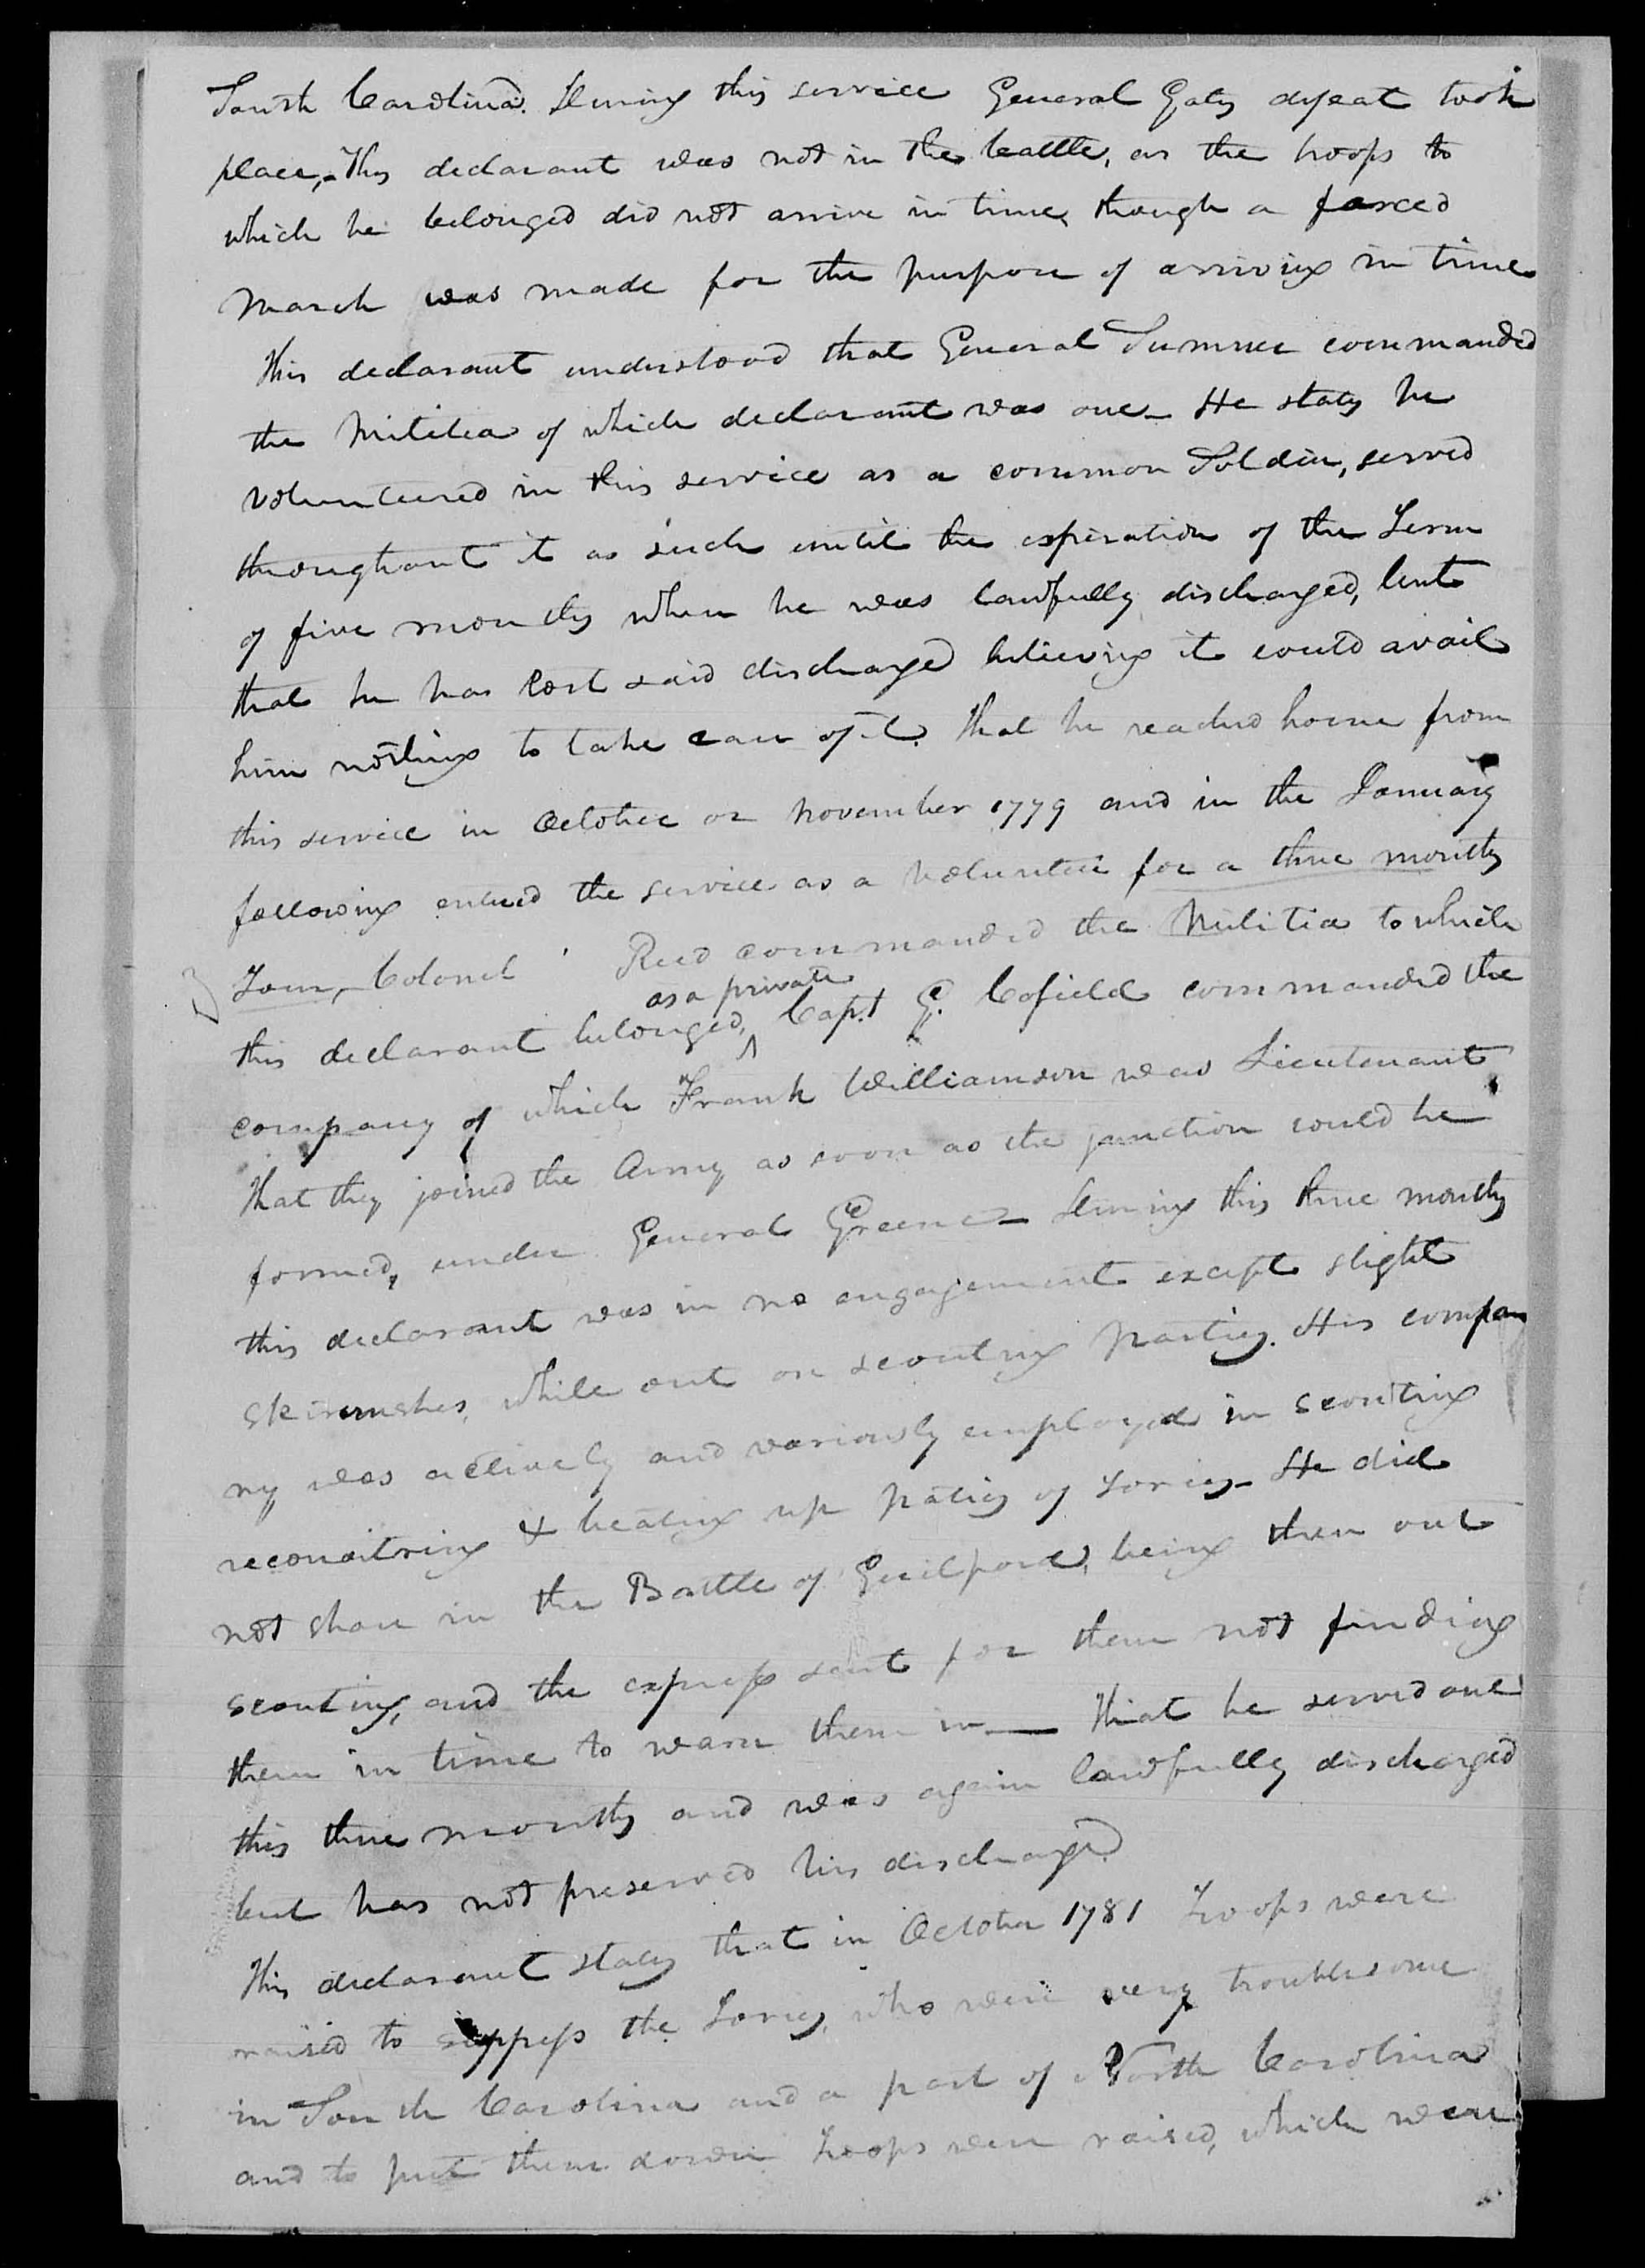 South Carolina. During this service General Gates defeat took
place,- This declarant was not in the battle, as the troops to
which he belonged did not arrive in time, though a forced
march was made for the purpose of arriving in time
This declarant understood that General Sumner commanded
the Militia of which declarant was one- He states he
volunteered in this service as a common Soldier, served
throughout it as such until the expiration of the Term
of five months when he was lawfully discharged, but
that he has lost said discharge believing it could avail
him nothing to take care of it. That he reached home from
this service in October or November 1779 and in the January
following entered the service as a volunteer for a three months
Tour,- Colonel Reed commanded the Militia to which
this declarant belonged, ^ as a private Capt G. Cofield commanded the
company of which Frank Williamson was Lieutenant
That they joined the Army as soon as the junction could be
formed, under General Greene- During this three months
this declarant was in no engagement except slight
skirmishes, while out on scouting parties. His compa
ny was actively and variously employed in scouting
reconoitring & beating up paties of Tories- He did
not share in the Battle of Guilford, being then out
scouting, and the express sent for them not finding
them in time to warn them in— That he served out
this three months and was again lawfully discharged
but has not preserved his discharge
This declarant states that in October 1781 Troops were
raised to suppress the Tories, who were very troublesome
in South Carolina and a part of North Carolina
and to put them down Troops were raised, which were